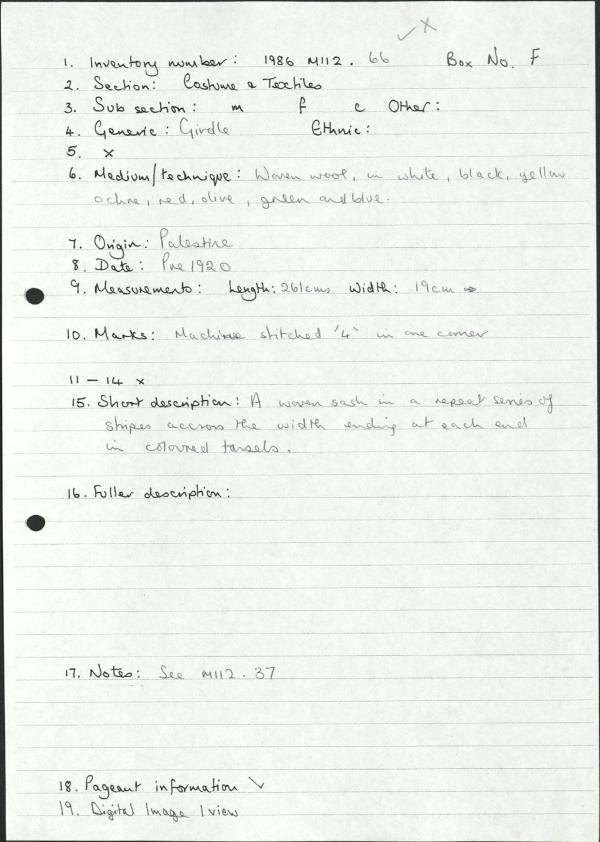 ✓ x
1. Inventory number: 1986 M112. 66 Box No. F
2. Section: Costume & Textiles
3. Sub section: m f c Other:
4. Generic: Girdle Ethnic:
5. x
6. Medium/technique: Woven wool, in white, black, yellow
ochre, red, olive, green and blue.
7. Origin: Palestine
8. Date: Pre 1920
9. Measurements: Length: 261cms Width: 19cm
10. Marks: Machine stitched '4' in one corner
11 – 14 x
15. Short description: A woven sash in a repeat series of
stripes accross the width ending at each end
in coloured tassels.
16. Fuller description:
17. Notes: See M112. 37
18. Pageant information ✓
19. Digital Image 1 view